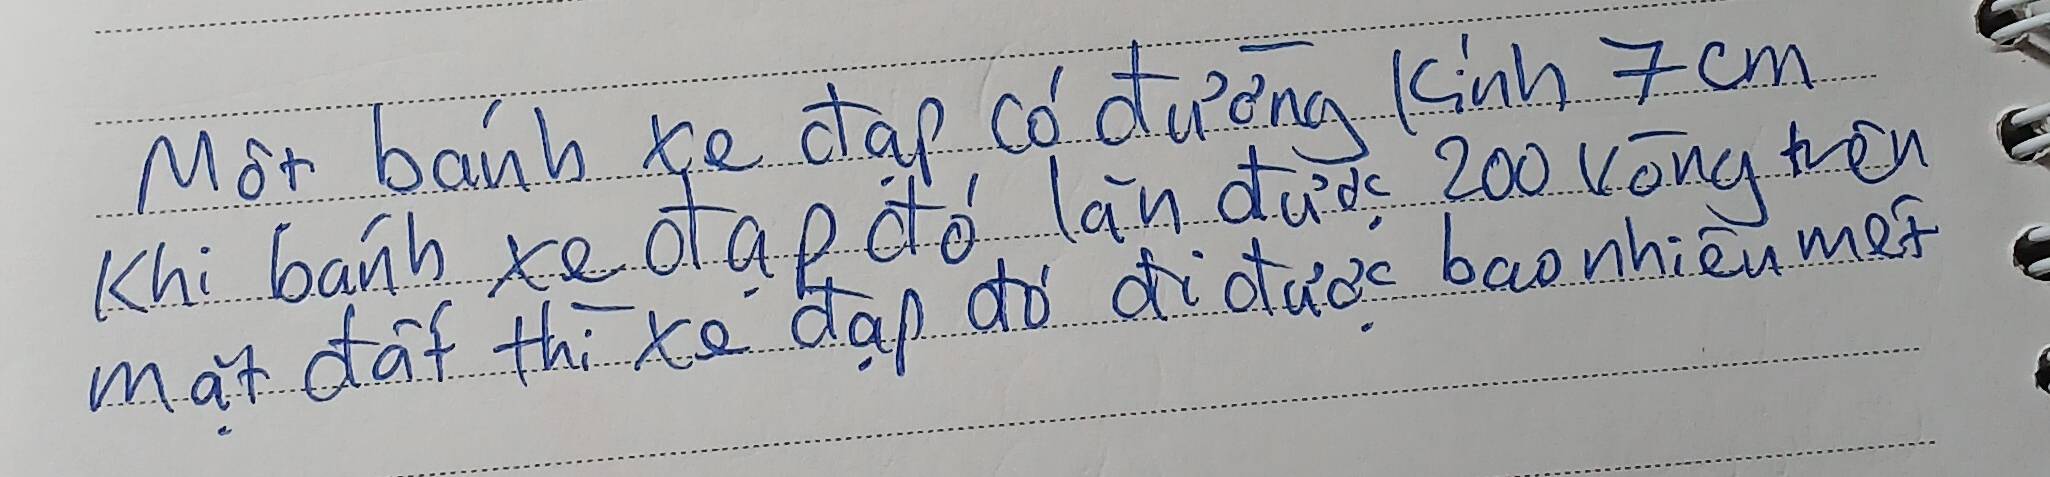 Một bánh xe đạp có đường kính 7 cm
Khi bánh xe đạp đó lăn được 200 vòng trên
mặt đất thì xe đạp đó đi được bao nhiêu mét